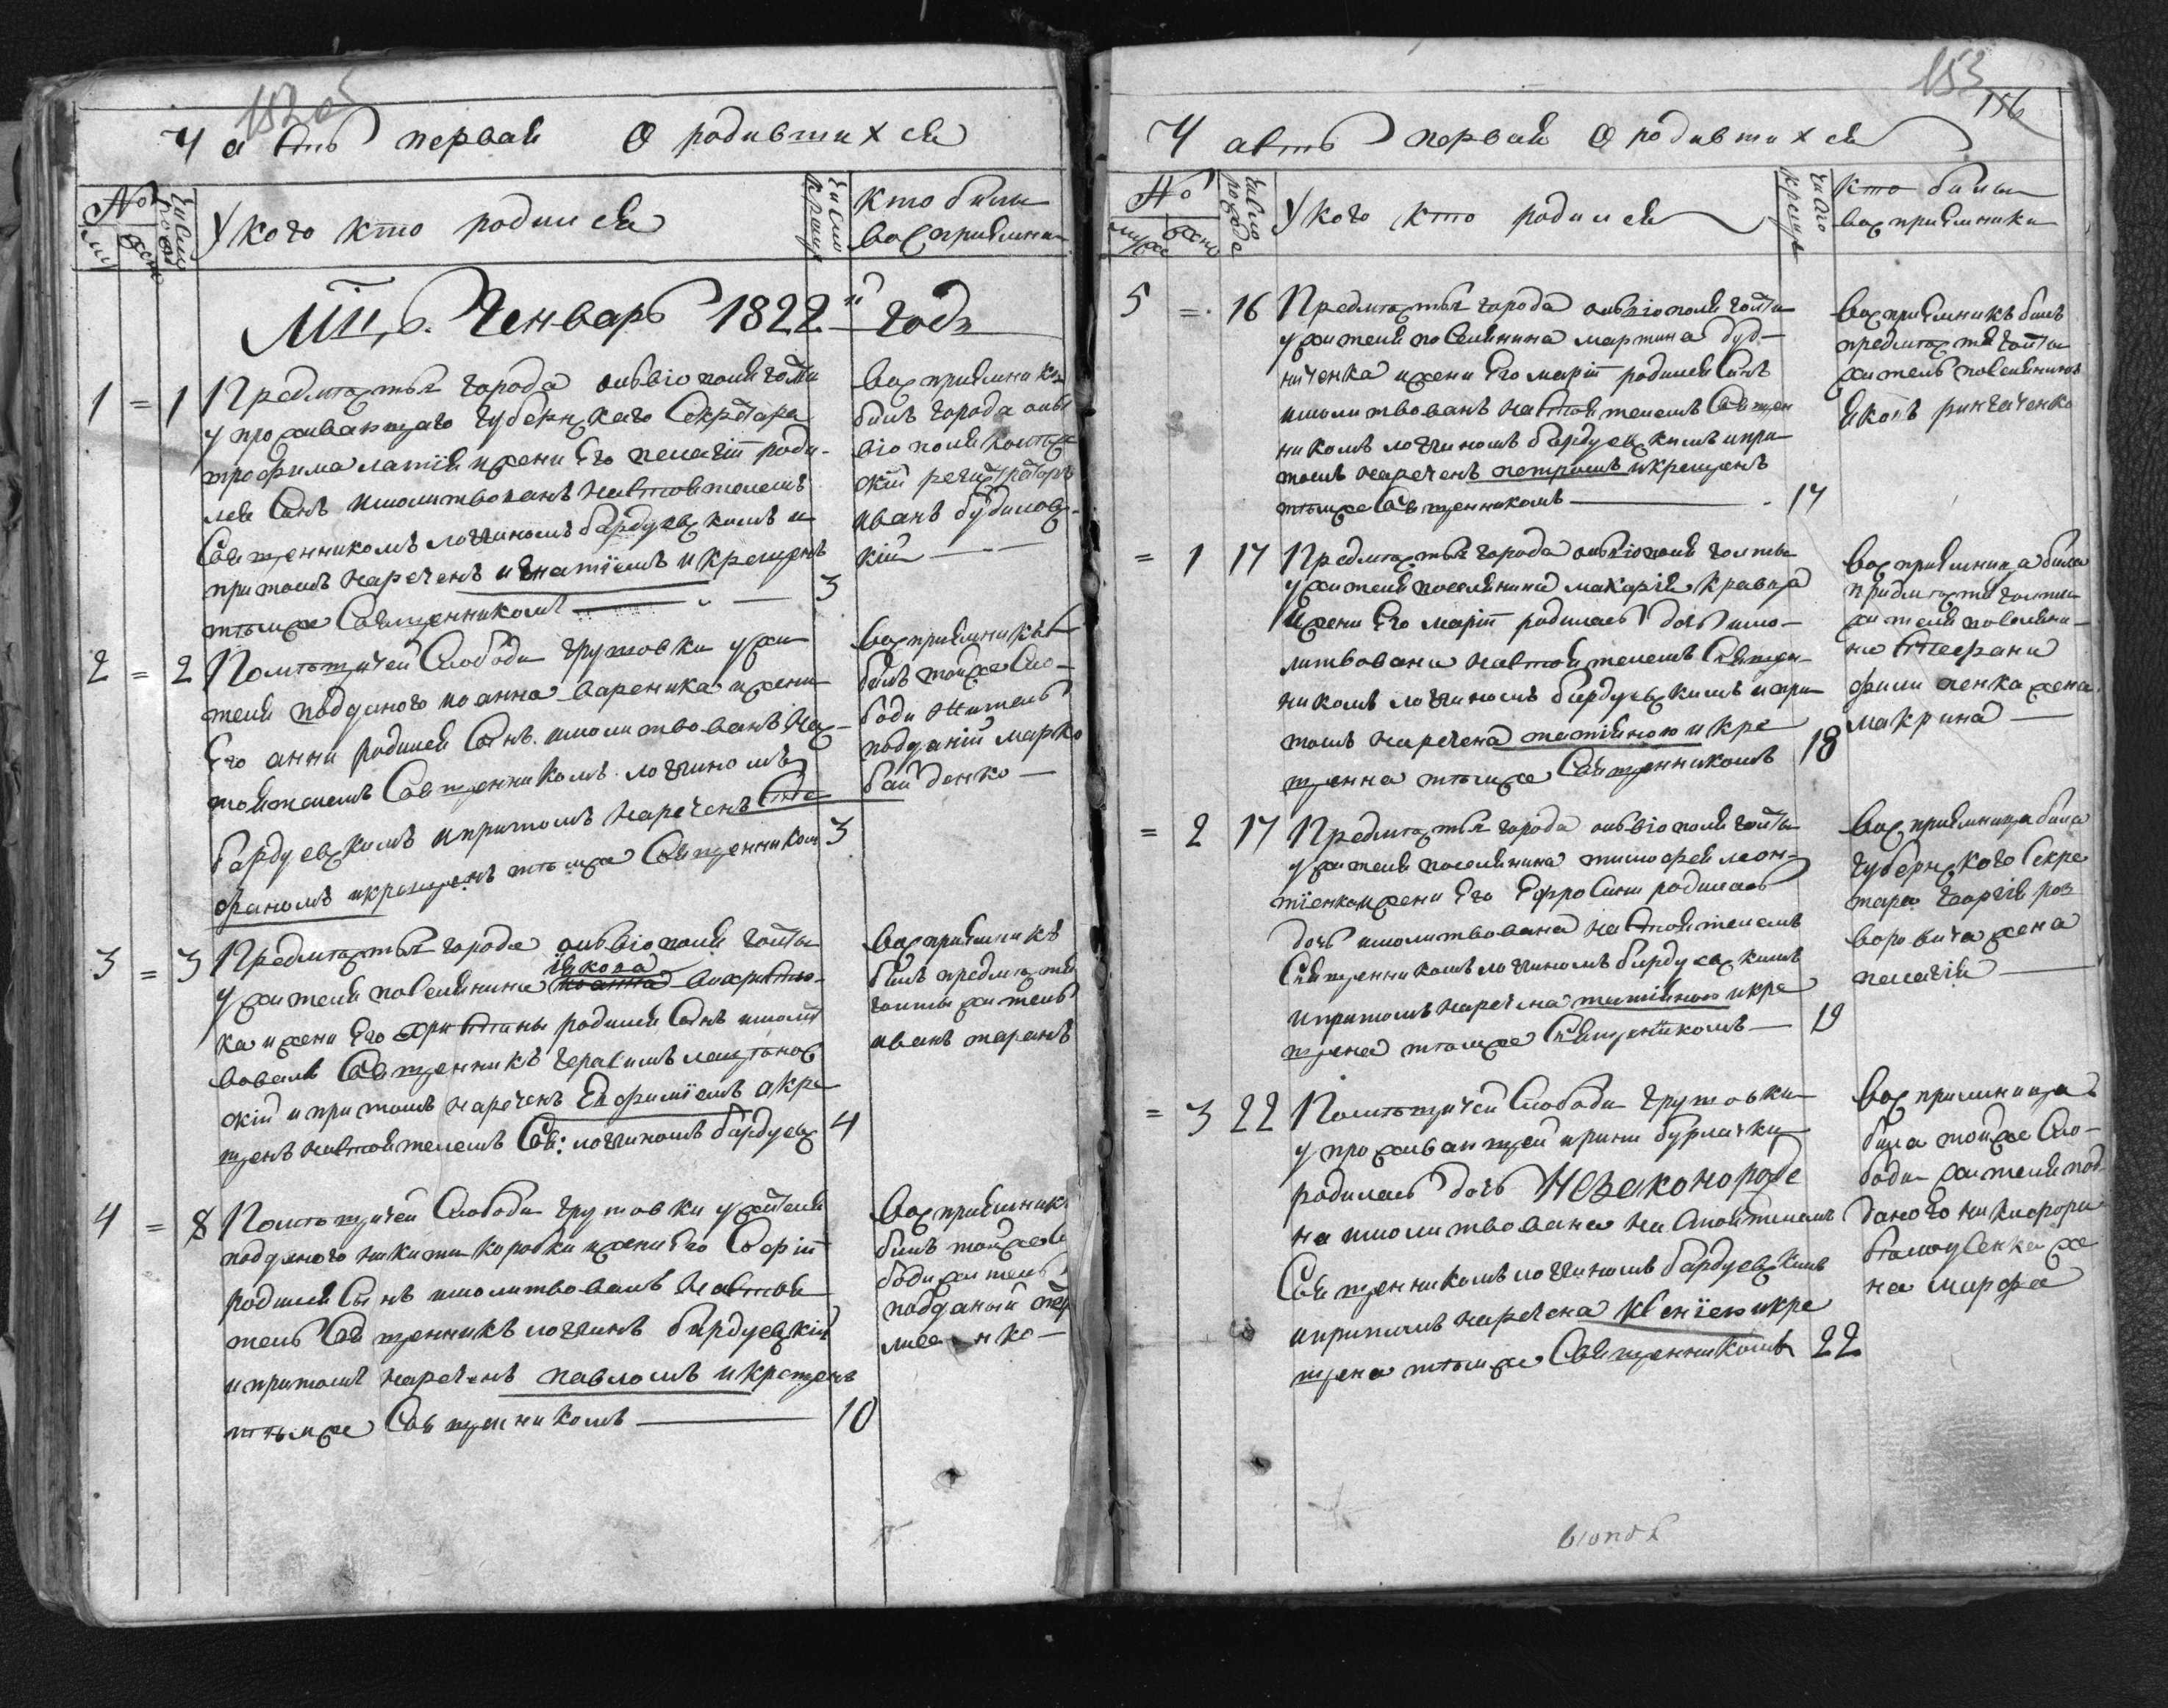 152 об
Часть первая О родившихся
№
муж
жен
Число рожд
У кого кто родился
Число крещен
Кто были
восприемни
Мць. Генварь 1822й годъ
1 = 1 Предместья города Олвіополя Голти
у проживающаго Губернскаго Секретара
трофима латія и жени Его пелагіи роди-
лся Синъ имолитвованъ настоятелемъ
Священникомъ логгиномъ бардуевскимъ и
притомъ нареченъ игнатіемъ и крещенъ
темже Священникомъ 3
восприемникъ
билъ города олв
віополя колеж
скій регистраторъ
иванъ будиловс-
кій
2 = 2 Помещичей Слободи Грушовки у жи
теля подданого иоанна вареника и жени
Его анни родился Синъ имолитвованъ нас-
тоятелемъ Священникомъ логгиномъ
бардуевскимъ и притомъ нареченъ Сте
фаномъ и крещенъ темже Священником 3
восприемникъ
билъ тойже Сло-
боди житель
подданій марко
байденко
3 = 3 Предместья города олвіополя Голти
у жителя поселянина иоанна якова
ка и жени Его христины родился Синъ имолит
вовалъ Священникъ Герасимъ
скій и притомъ нареченъ Евфиміемъ а кре
щенъ настоятелемъ Свя: логгиномъ бардуевс 4
восприемникъ
билъ предместя
голты житель
иванъ таранъ
4 = 8 Помещичей Слободи Грушовки у жителя
подданого никити коробки и жени Его Софіи
родился Сынъ имолитвовалъ Настоя
тель Священникъ логгинъ бардуевскій
и притомъ нареченъ павломъ и крещенъ
темже Священникомъ 10
восприемник
билъ тойже Сл
боди житель
подданый

153
156
Часть первая О родившихся
№
муж
жен
Число рожде
У кого кто родился
Число крещен
Кто были
восприемники
5 = 16 Предместья города олвіополя Голти
у жителя поселянина мартина буд-
ниченка и жени Его маріи родился Синъ
имолитвованъ настоятелемъ Священ
никомъ логгиномъ бардуевскимъ и при
томъ нареченъ петромъ и крещенъ
темже Священникомъ 17
восприемникъ билъ
предместя Голти
житель поселянинъ
яковъ
= 1 17 Предместья города олвіополя Голти
у жителя поселянина макарія кравца
и жени Его маріи родилась дочь имо-
литвована настоятелемъ Священ-
никомъ логгиномъ бардуевскимъ и при
томъ наречена татіяною и кре
щенна темже Священникомъ 18
восприемница била
предместя голти
жителя поселяни-
на Стефана
филипенка жена
макрина
= 2 17 Предместья города олвіополя Голти
у жителя поселянина тимофея леон-
тіенка и жени Его Ефросини родилась
дочь имолитвована настоятелемъ
Священникомъ логгиномъ бардуевскимъ
и притомъ наречена татіяною и кре
щена темже Священникомъ 19
восприемница била
Губернского Секре
тара Георгія роз
воровича жена
пелагія
= 3 22 Помещичей Слободи Грушовки
у проживающей ирини бурлачки
родилась дочь Незаконорожде
на имолитвована настоятелемъ
Священникомъ логгиномъ бардуевскимъ
и притомъ наречена ксеніею и кре
щена темже Священникомъ 22
восприемница
била тойже Сло-
боди жителя под
даного никифора
же
на марфа